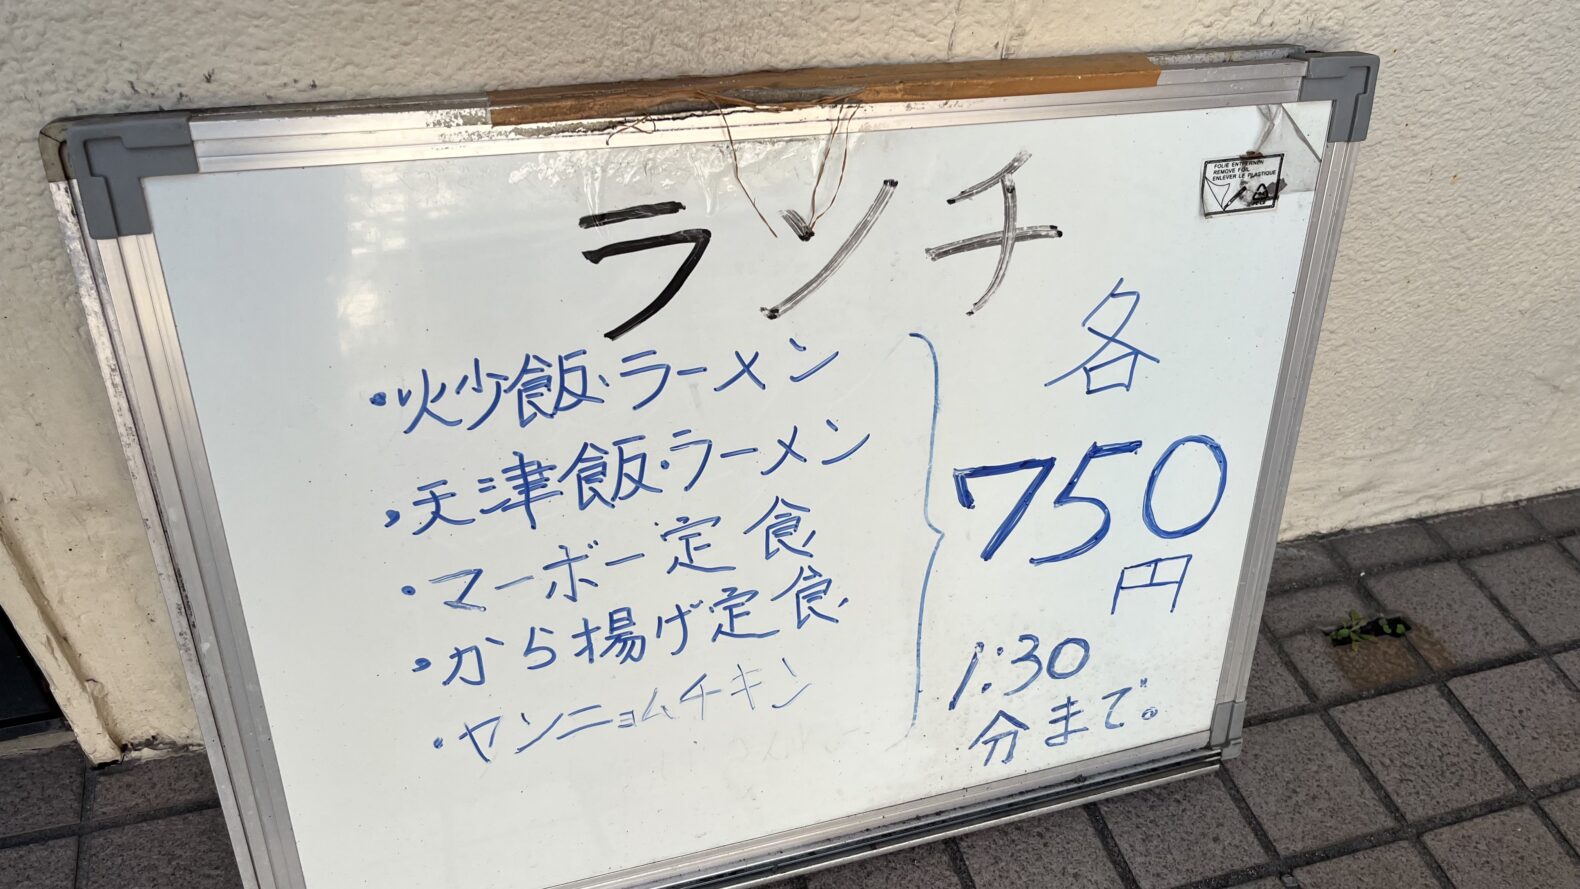 ランチ
FOLIE ENTFERNEN
REMOVE FOIL
ENLEVER LE PLASTIQUE
・炒飯・ラーメン
・天津飯・ラーメン
・マーボー定食
・から揚げ定食
・ヤンニョムチキン
各
750
円
1:30
分まで。